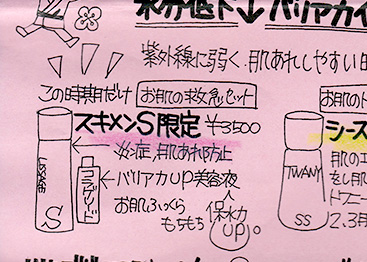 水分低下↓バリアカイ
紫外線に弱く、肌あれしやすい
この時期だけ お肌の救急セット
スキメンS限定 ¥3500
炎症、肌あれ防止
←バリアカup美容液
お肌ふっくら
もちもち
保水力
up
LISSAGE
S
コラゲリード
お肌の
シース
肌のエ
をし肌
トワニー
2.3月
TWANY
SS